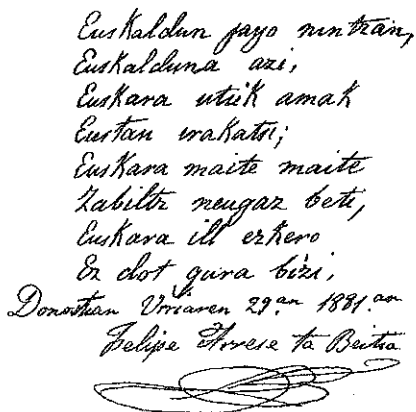 Euskaldun jayo nintzan,
Euskalduna azi,
Euskara utsik amak
Eustan irakatsi;
Euskara maite maite
Zabiltz neugaz beti,
Euskara ill ezkero
Ez dot gura bizi,
Donostian Urriaren 29.an 1881.an
Felipe Arrese ta Beitia